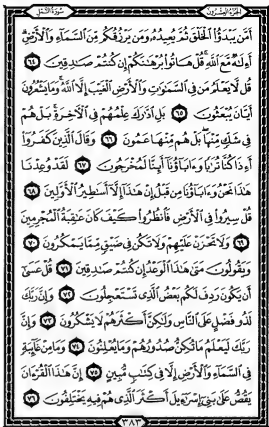 الجزء العشرون سورة النمل
أَمَّن يَبْدَؤُاْ ٱلْخَلْقَ ثُمَّ يُعِيدُهُۥ وَمَن يَرْزُقُكُم مِّنَ ٱلسَّمَآءِ وَٱلْأَرْضِ
أَءِلَٰهٌ مَّعَ ٱللَّهِ قُلْ هَاتُواْ بُرْهَٰنَكُمْ إِن كُنتُمْ صَٰدِقِينَ ٦٤
قُل لَّا يَعْلَمُ مَن فِى ٱلسَّمَٰوَٰتِ وَٱلْأَرْضِ ٱلْغَيْبَ إِلَّا ٱللَّهُ وَمَا يَشْعُرُونَ
أَيَّانَ يُبْعَثُونَ ٦٥ بَلِ ٱدَّٰرَكَ عِلْمُهُمْ فِى ٱلْأَخِرَةِ بَلْ هُمْ
فِى شَكٍّ مِّنْهَا بَلْ هُم مِّنْهَا عَمُونَ ٦٦ وَقَالَ ٱلَّذِينَ كَفَرُوٓاْ
أَءِذَا كُنَّا تُرَٰبًا وَءَابَآؤُنَآ أَئِنَّا لَمُخْرَجُونَ ٦٧ لَقَدْ وُعِدْنَا
هَٰذَا نَحْنُ وَءَابَآؤُنَا مِن قَبْلُ إِنْ هَٰذَآ إِلَّآ أَسَٰطِيرُ ٱلْأَوَّلِينَ ٦٨
قُلْ سِيرُواْ فِى ٱلْأَرْضِ فَٱنظُرُواْ كَيْفَ كَانَ عَٰقِبَةُ ٱلْمُجْرِمِينَ
٦٩ وَلَا تَحْزَنْ عَلَيْهِمْ وَلَا تَكُن فِى ضَيْقٍ مِّمَّا يَمْكُرُونَ ٧٠
وَيَقُولُونَ مَتَىٰ هَٰذَا ٱلْوَعْدُ إِن كُنتُمْ صَٰدِقِينَ ٧١ قُلْ عَسَىٰٓ
أَن يَكُونَ رَدِفَ لَكُم بَعْضُ ٱلَّذِى تَسْتَعْجِلُونَ ٧٢ وَإِنَّ رَبَّكَ
لَذُو فَضْلٍ عَلَى ٱلنَّاسِ وَلَٰكِنَّ أَكْثَرَهُمْ لَا يَشْكُرُونَ ٧٣ وَإِنَّ
رَبَّكَ لَيَعْلَمُ مَا تُكِنُّ صُدُورُهُمْ وَمَا يُعْلِنُونَ ٧٤ وَمَا مِنْ غَآئِبَةٍ
فِى ٱلسَّمَآءِ وَٱلْأَرْضِ إِلَّا فِى كِتَٰبٍ مُّبِينٍ ٧٥ إِنَّ هَٰذَا ٱلْقُرْءَانَ
يَقُصُّ عَلَىٰ بَنِىٓ إِسْرَٰٓءِيلَ أَكْثَرَ ٱلَّذِى هُمْ فِيهِ يَخْتَلِفُونَ ٧٦
٣٨٣